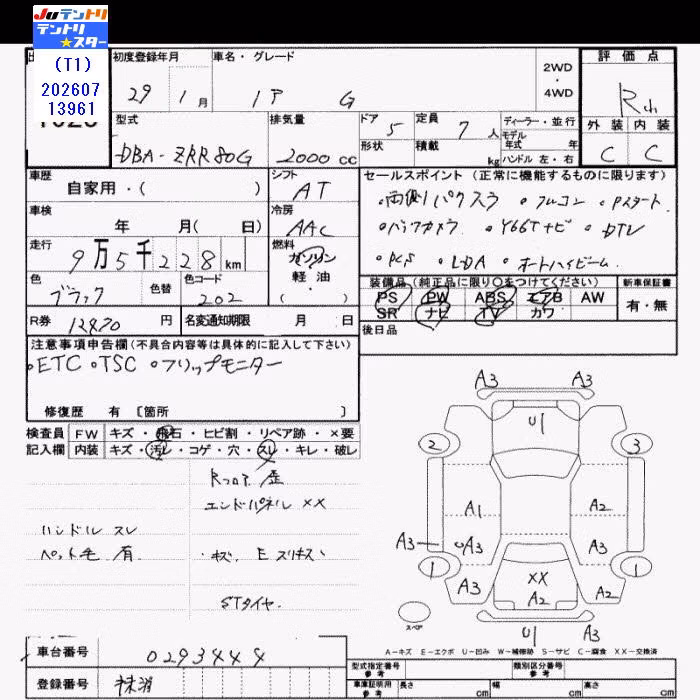 Juテントリ
テントリ
★スター
(T1)
202607
13961
初度登録年月 車名・グレード 2WD・4WD 評価点
29 1月 G R
型式 排気量 ドア 5 定員 7人 ディーラー・並行 外装 内装
モデル年式 年
DBA-ZRR80G 2000cc 形状 積載 kg ハンドル 左・右 C C
車歴 シフト セールスポイント(正常に機能するものに限ります)
自家用・( ) AT ・両側パワスラ ・フルコン ・Pスタート
車検 冷房
年 月( 日) AAC ・バックカメラ ・Y66Tナビ ・DTV
走行 燃料
9万5千228km ガソリン ・PCS ・LDA ・オートハイビーム
軽・油
色 色替 色コード ( ) 装備品(純正品に限り○をつけてください) 新車保証書
ブラック 202 PS PW ABS エアB AW 有・無
SR ナビ TV カワ
R券 12870円 名変通知期限 月 日 後日品
注意事項申告欄(不具合内容等は具体的に記入して下さい)
・ETC ・TSC ・フリップモニター
修復歴 有 〔箇所 〕
検査員 FW キズ・飛石・ヒビ割・リペア跡・×要
記入欄 内装 キズ・汚レ・コゲ・穴・スレ・キレ・破レ
Rフロア 歪
エンドパネル XX
ハンドル スレ
ペット毛 有 ・キズ、Eスリキズ
STタイヤ
A3 A3
U1
2 3
A1 A2
A3 A3 A3
1 1
A3 XX A2
A2
スペア U1 A3
A-キズ E-エクボ U-凹み W-補修跡 S-サビ C-腐食 XX-交換済
車台番号 0293444
登録番号 抹消
型式指定番号 参考 類別区分番号 参考
車庫証明用 参考 長さ cm 幅 cm 高さ cm